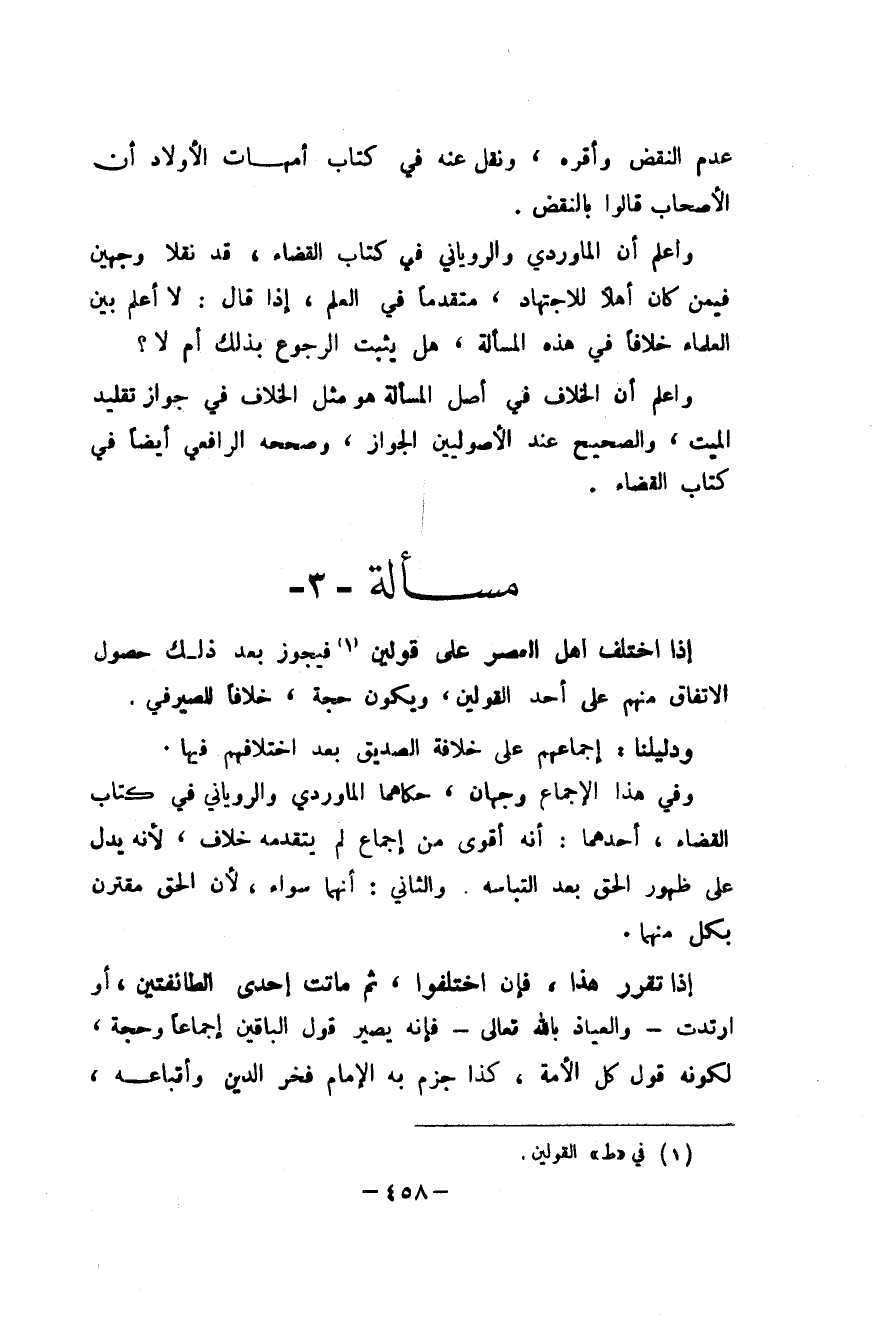 عدم النقض وأقره ، ونقل عنه في كتاب أمهـــات الأولاد أن
الأصحاب قالوا بالنقض .
واعلم أن الماوردي والروياني في كتاب القضاء ، قد نقلا وجهين
فيمن كان أهلاً للاجتهاد ، متقدماً في العلم ، إذا قال : لا أعلم بين
العلماء خلافاً في هذه المسألة ، هل يثبت الرجوع بذلك أم لا ؟
واعلم أن الخلاف في أصل المسألة هو مثل الخلاف في جواز تقليد
الميت ، والصحيح عند الأصوليين الجواز ، وصححه الرافعي أيضاً في
كتاب القضاء .
مســـألة - ٣-
إذا اختلف أهل العصر على قولين (١) فيجوز بعد ذلـك حصول
الاتفاق منهم على أحد القولين، ويكون حجة ، خلافاً للصيرفي .
ودليلنا : إجماعهم على خلافة الصديق بعد اختلافهم فيها .
وفي هذا الإجماع وجهان ، حكاهما الماوردي والروياني في كتاب
القضاء ، أحدهما : أنه أقوى من إجماع لم يتقدمه خلاف ، لأنه يدل
على ظهور الحق بعد التباسه . والثاني : أنهما سواء ، لأن الحق مقترن
بكل منهما .
إذا تقرر هذا ، فإن اختلفوا ، ثم ماتت إحدى الطائفتين ، أو
ارتدت – والعياذ بالله تعالى – فإنه يصير قول الباقين إجماعاً وحجة ،
لكونه قول كل الأمة ، كذا جزم به الإمام فخر الدين وأتباعـــه ،
(١) في «ط» القولين .
– ٤٥٨ –